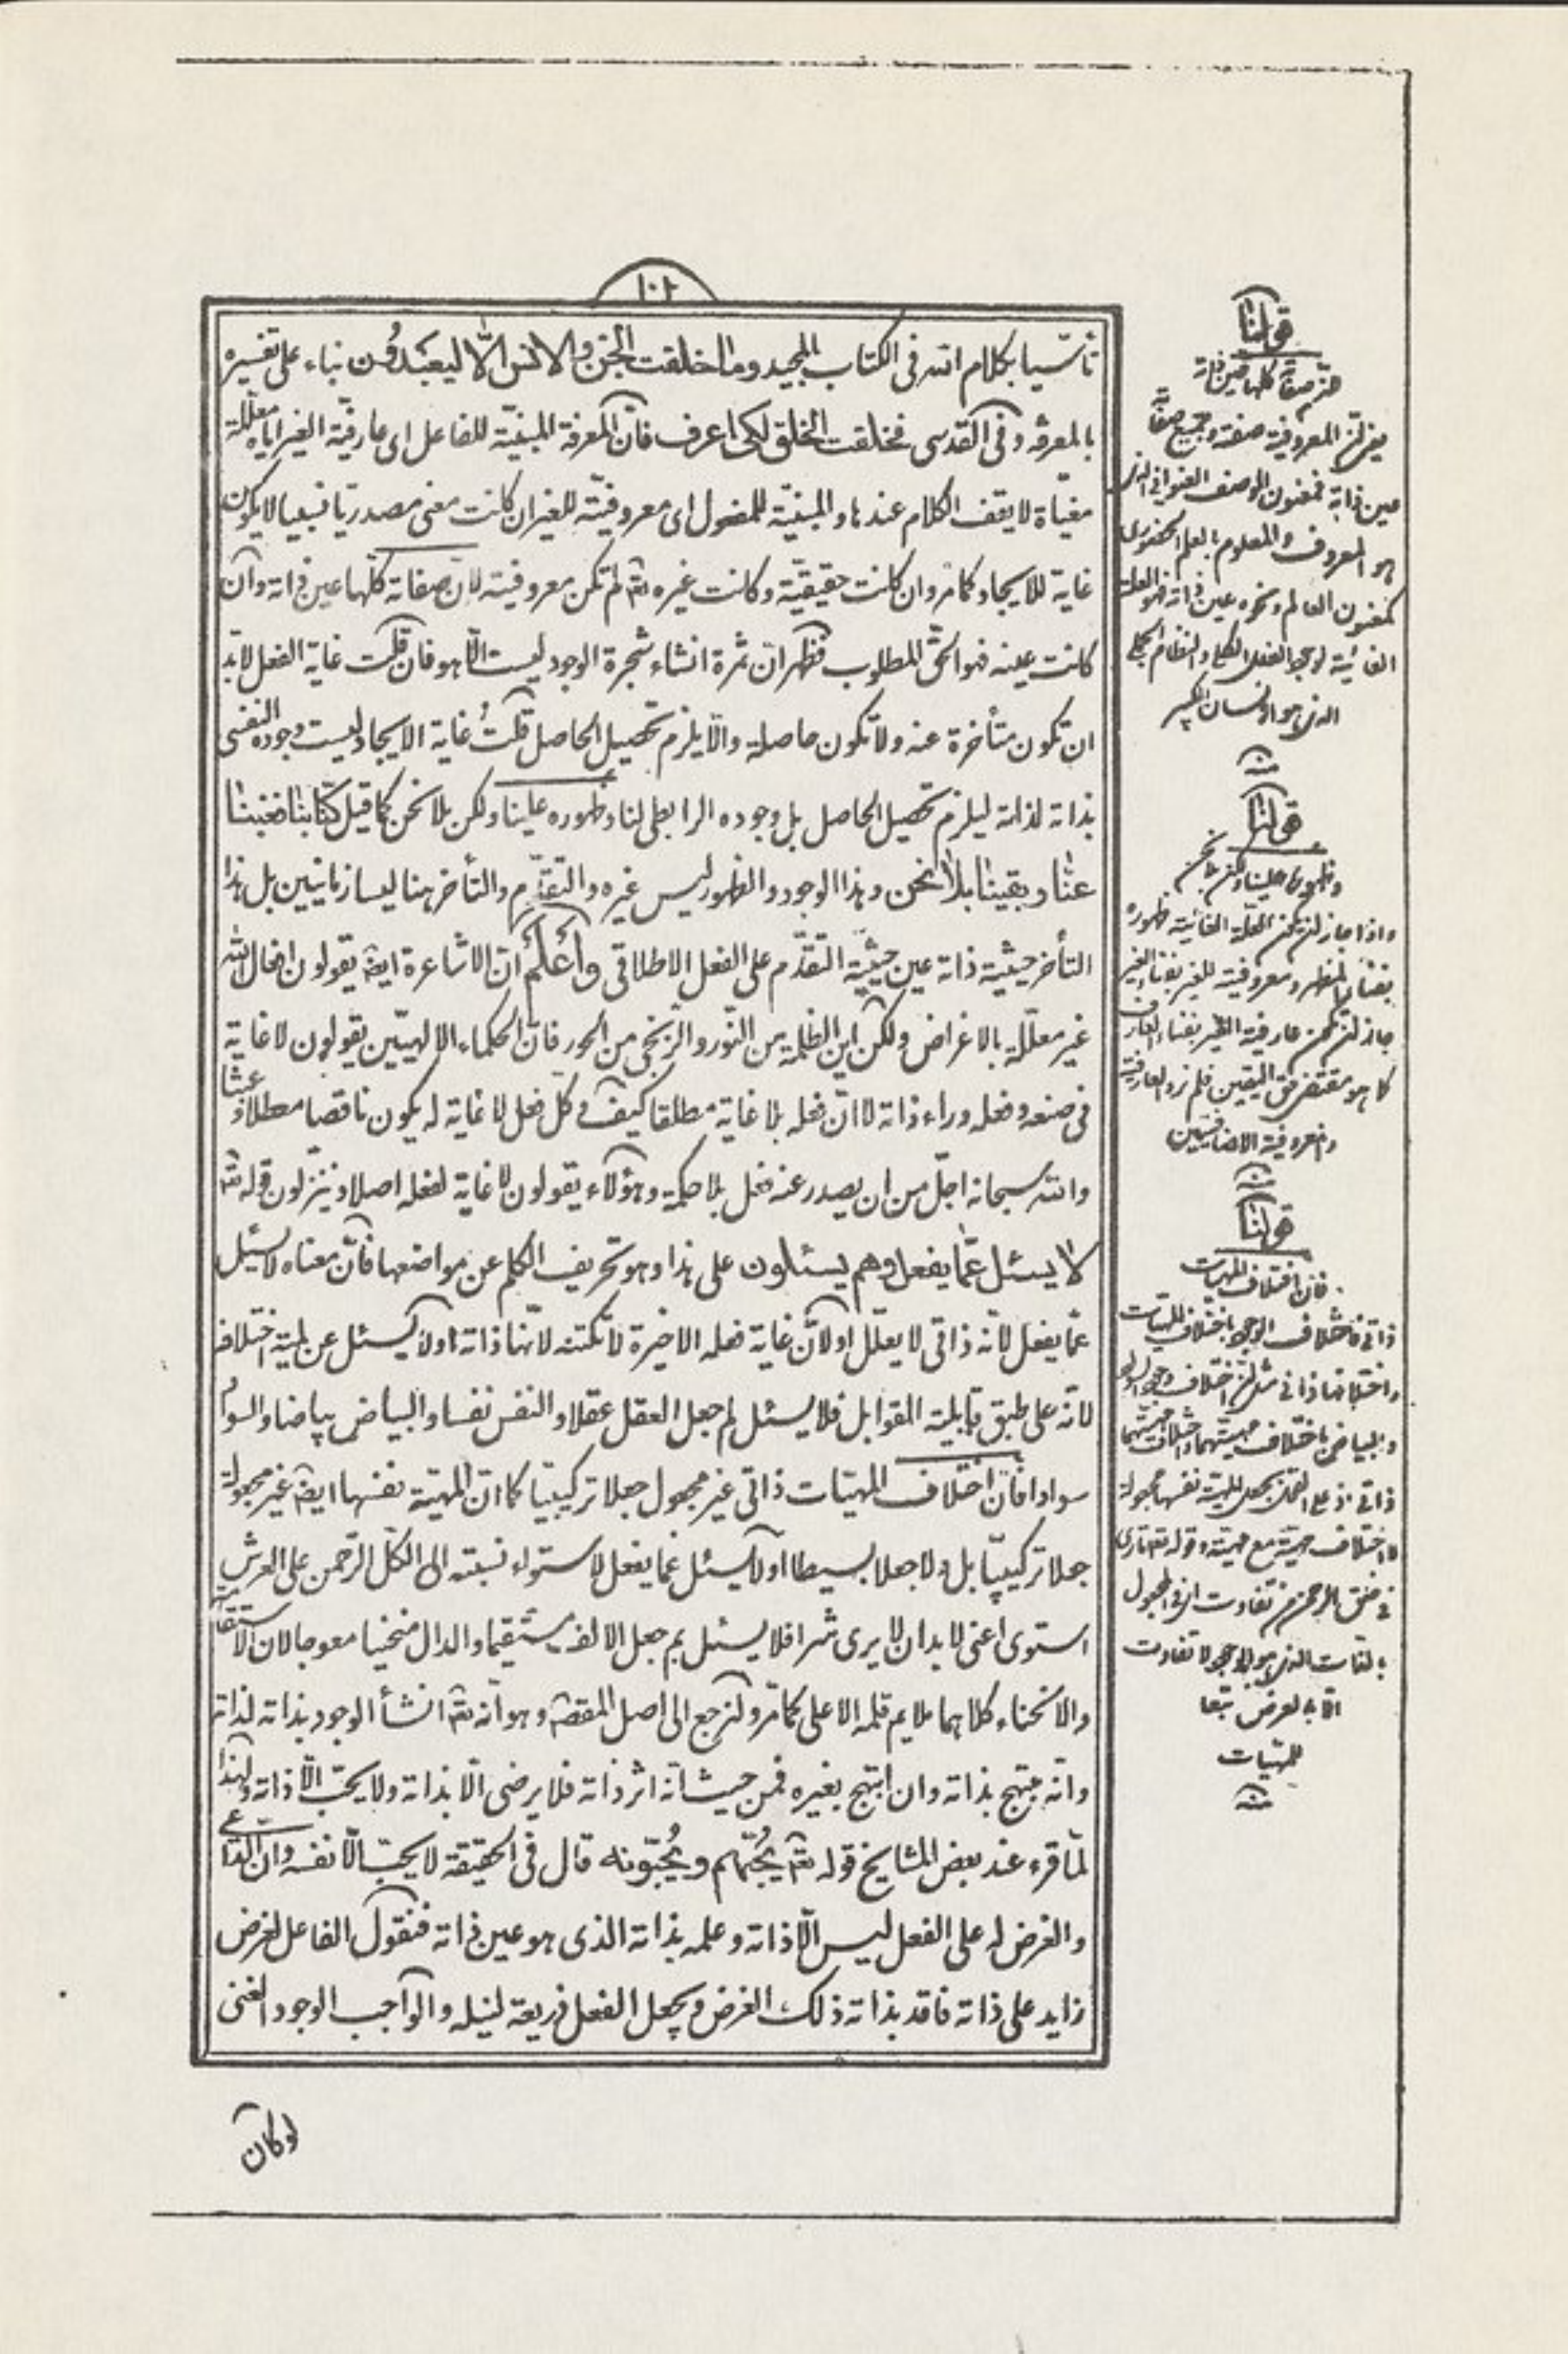 ١٠٢
تأسّيا بكلام الله فى الكتاب المجيد وما خلقت الجنّ والانس الّا ليعبدون بناء على تفسيره
بالمعرفة وفى القدسى فخلقت الخلق لكى اعرف فانّ المعرفة المبنيّة للفاعل اى عارفيّة الغير اياه معلّلة
مغيّاة لا يقف الكلام عندها والمبنيّة للمفعول اى معروفيّته للغير ان كانت معنى مصدريّا نسبيا لا يكون
غاية للايجاد كما مر وان كانت حقيقيّة وكانت غيره تع لم تكن معروفيته لانّ صفاته كلّها عين ذاته وان
كانت عينه فهو الحقّ المطلوب فظهر انّ ثمرة انشاء شجرة الوجود ليست الّا هو فان قلت غاية الفعل لابدّ
ان تكون متأخرة عنه ولا تكون حاصلة والّا يلزم تحصيل الحاصل قلتُ غاية الايجاد ليست وجوده النفسى
بذاته لذاته ليلزم تحصيل الحاصل بل وجوده الرابطى لنا وظهوره علينا ولكن بلا نحن كما قيل كنّا بنا فغبنا
عنّا وبقينا بلا نحن وهذا الوجود والظهور ليس غيره والتقدّم والتأخر هنا ليسا زمانيّين بل هذا
التأخر حيثية ذاته عين حيثيّة التقدّم على الفعل الاطلاقى وأعلم انّ الاشاعرة ايضا يقولون افعال الله
غير معلّلة بالاغراض ولكن اين الظلمة من النّور والزنجى من الحور فانّ الحكماء الالهيّين يقولون لا غاية
فى صنعه وفعله وراء ذاته لا انّ فعله بلا غاية مطلقا كيف وكل فعل لا غاية له يكون ناقصا معطلا وعبثا
والله سبحانه اجلّ من ان يصدر عنه فعل بلا حكمة وهؤلاء يقولون لا غاية لفعله اصلا وينزّلون قوله تع
لا يسئل عمّا يفعل وهم يسئلون على هذا وهو تحريف الكلم عن مواضعها فانّ معناه لا يسئل
عمّا يفعل لانّه ذاتى لا يعلّل او لانّ غاية فعله الاخيرة لا تكتنه لانّها ذاته او لا يسئل عن لمية اختلافه
لانّه على طبق قابلية القوابل فلا يسئل لم جعل العقل عقلا والنفس نفسا والبياض بياضا والسواد
سوادا فانّ اختلاف المهيّات ذاتى غير مجعول جعلا تركيبيّا كما انّ المهيّة نفسها ايضا غير مجعولة
جعلا تركيبيّا بل ولا جعلا بسيطا او لا يسئل عما يفعل لاستواء نسبته الى الكلّ الرّحمن على العرش
استوى اعنى لابد ان لا يرى شرا فلا يسئل بم جعل الالف مستقيما والدال منحنيا معوجا لان الاستقامة
والانحناء كلاهما ملايم قلمه الاعلى كما مرّ ولنرجع الى اصل المقصد وهو انّه تع انشأ الوجود بذاته لذاته
وانّه مبتهج بذاته وان ابتهج بغيره فمن حيث انّه اثر ذاته فلا يرضى الّا بذاته ولا يحبّ الّا ذاته ولهذا
لمّا قرء عند بعض المشايخ قوله تع يُحبّهم ويُحبّونه قال فى الحقيقة لا يحبّ الّا نفسه وانّ الدّاعى
والغرض له على الفعل ليس الّا ذاته وعلمه بذاته الذى هو عين ذاته فنقول الفاعل لغرض
زايد على ذاته فاقد بذاته ذلك الغرض ويجعل الفعل ذريعة لنيله والواجب الوجود الغنى
لو كان
قولنا
لانّ صفاته كلها عين ذاته
يعنى ان المعروفية صفته وجميع صفاته
عين ذاته فمعنون الوصف العنوانى الذى
هو المعروف والمعلوم بالعلم الحضورى
كمعنون العالم ونحوه عين ذاته فهو العلة
الغائية لوجود الفعل الكلى والنظام الجملى
الذى هو الانسان الكبير
قولنا
وظهوره علينا ولكن بلا نحن
واذا جاز ان يكون العلة الغائية ظهوره
بفناء المظهر ومعروفيته للغير بفناء الغير
جاز ان تكون عارفية الغير بفناء العارف
كما هو مقتضى حق اليقين فلم نرد العارفية
والمعروفية الاضافيتين
قولنا
فان اختلاف المهيات
ذاتى فاختلاف الوجود باختلاف المهيات
واختلافها ذاتى مثل ان اختلاف وجود السواد
والبياض باختلاف مهيتهما واختلاف مهيتهما
ذاتى اذ على القول بجعل المهية نفسها مجعولة
لا اختلاف مهية مع مهية وقوله تعالى ما ترى
فى خلق الرحمن من تفاوت اى فى المجعول
بالذات الذى هو الوجود لا تفاوت
الا بالعرض تبعا
للمهيات